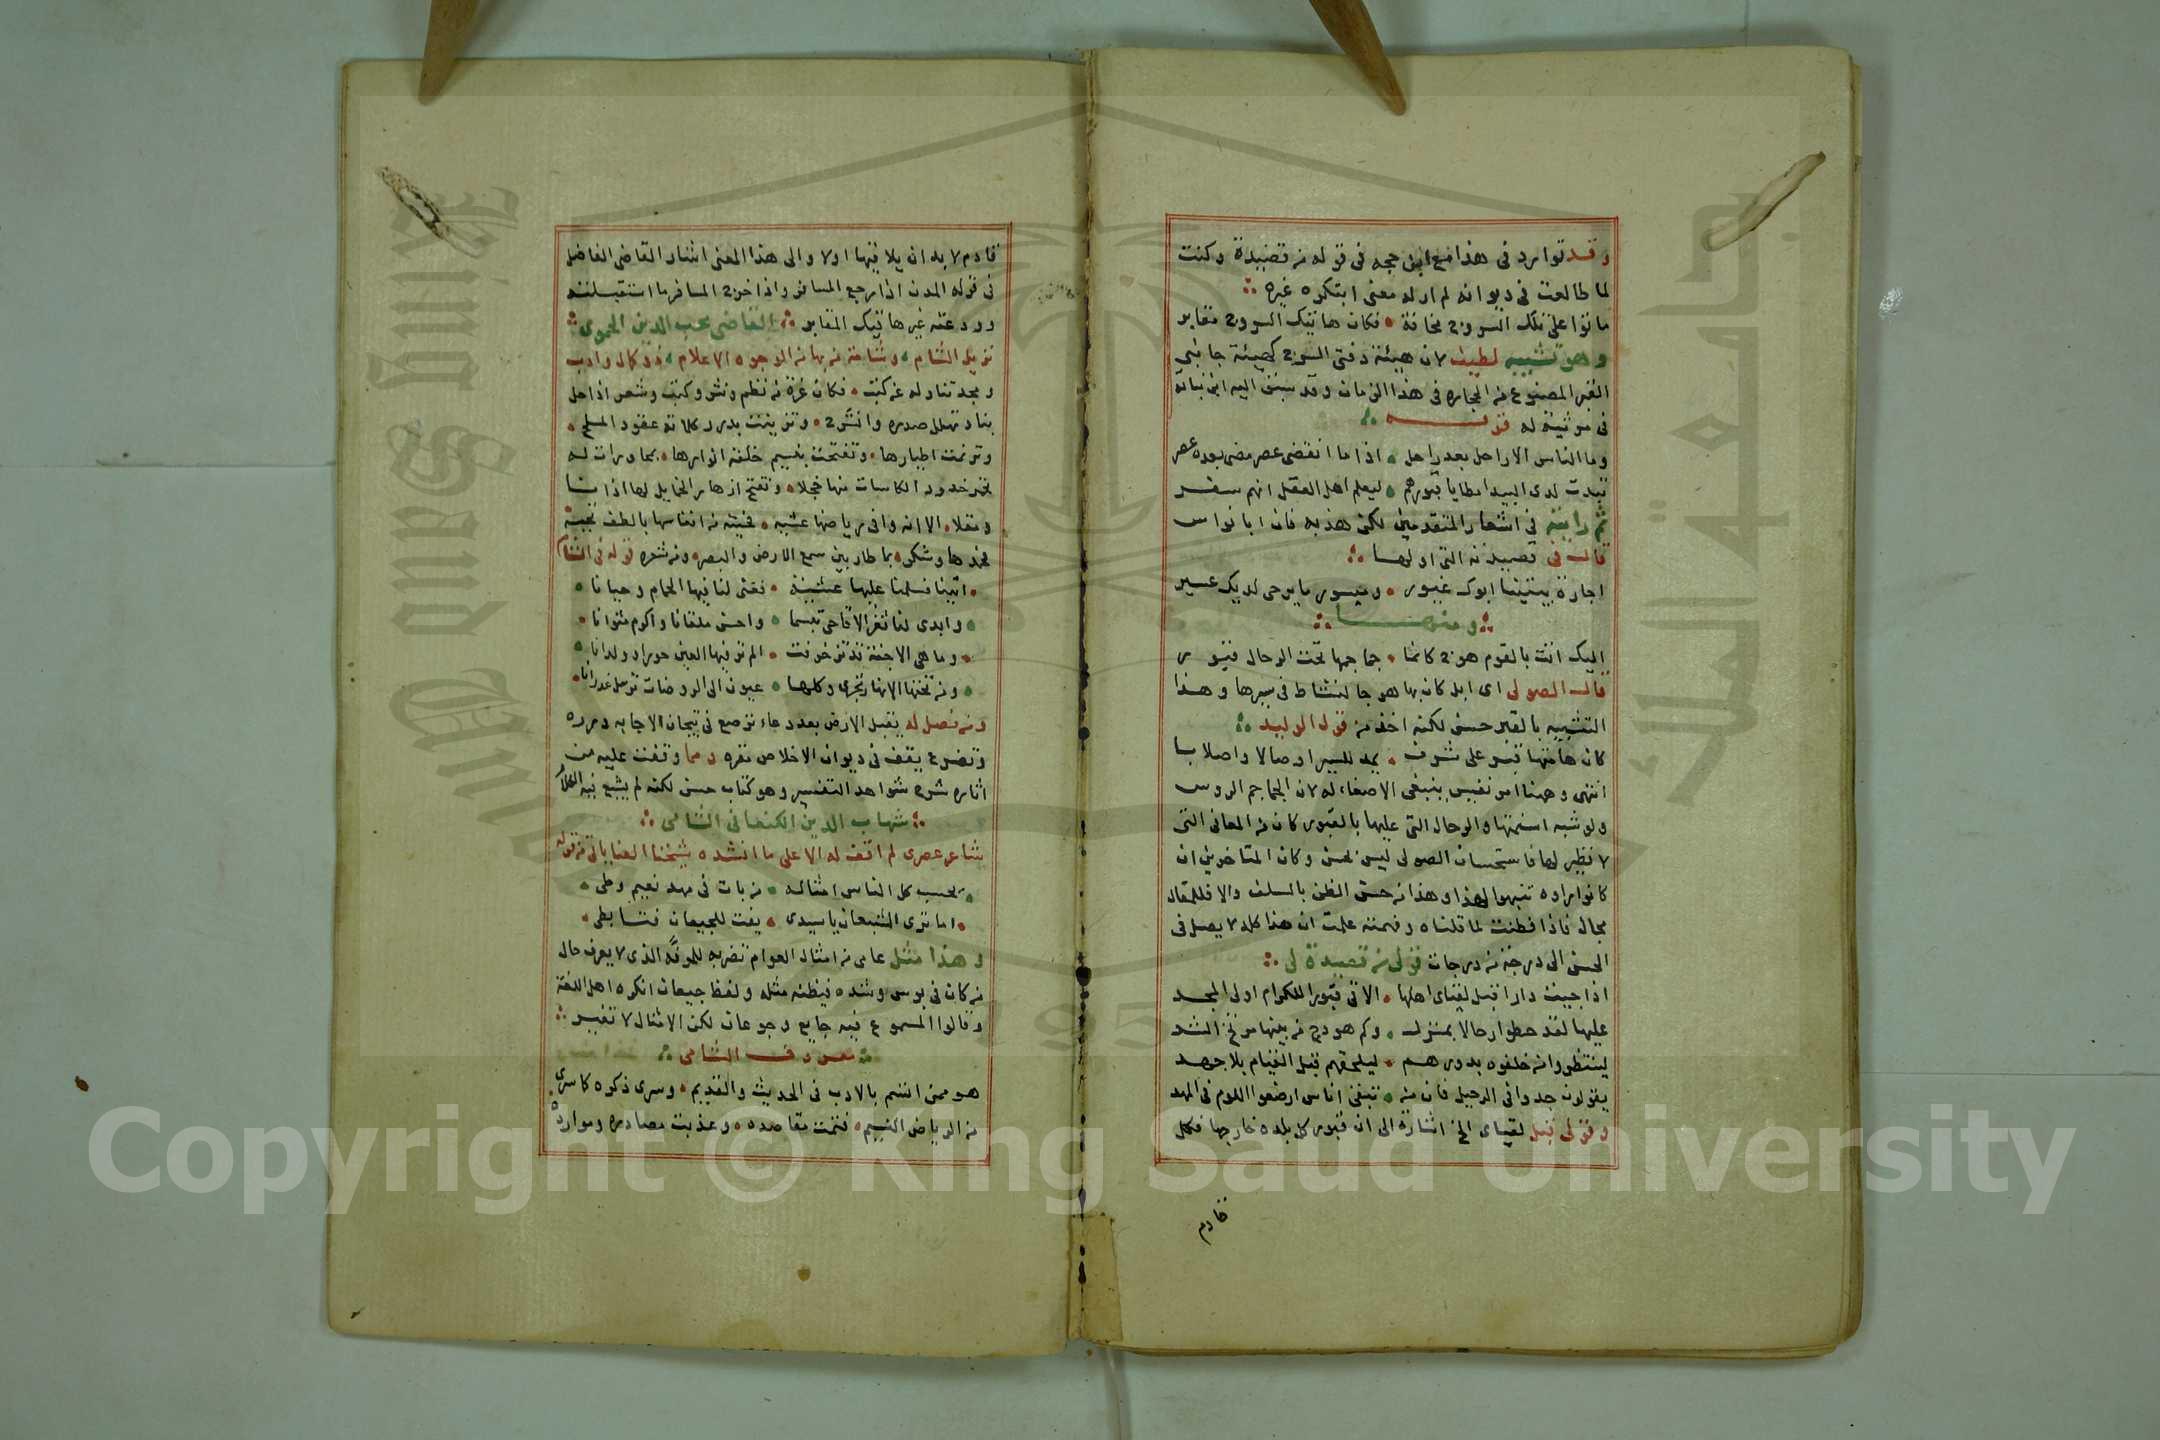 وقد توارد في هذا مع ابن حجه في قوله من قصيدة وكنت
لما طالعت في ديوانه لم ار له معنى ابتكره غيره
ماتوا على تلك السروج مخافة فكان هاتيك السروج مقابر
وهو تشبيه لطيف لان هيئة دفتي السرج كهيئة جانبي
القبر المصنوع من الحجاره في هذا الزمان وقد سبق اليه ابن نباتة
في مرثية له قوله
وما الناس الا راحل بعد راحل اذا ما انقضى عصر مضى بعده عصر
تبدت لدى البيدا مطايا قبورهم ليعلم اهل العقل انهم سفر
ثم رايته في اشعار المتقدمين لكن هذبه فان ابا نواس
قال في قصيدته التي اولها
اجارة بيتينا ابوك غيور وميسور ما يرجى لديك عسير
ومنها
اليك اتت بالقوم هوج كانما جماجمها تحت الرحال قبور
قال الصولي اى ابل كان بها هوجا لنشاط في سيرها وهذا
التشبيه بالقبر حسن لكنه اخذ من قول الوليد
كان هامتها قبر على شرف يمد للسير اوصالا واصلابا
انتهى وهنا امر نفيس ينبغي الاصغاء له لان الجماجم الروس
ولو شبه اسنمتها والرحال التي عليها بالقبور كان من المعاني التي
لا نظير لها فاستحسان الصولي ليس بحسن وكان المتاخرين ان
كانوا راوه تنبهوا لهذا وهذا من حسن الظن بالسلف والا فللمقال
مجال فاذا فطنت لما قلناه وفهمته علمت ان هذا كله لا يصل في
الحسن الى درجة من درجات قولي من قصيدة لي
اذا جيت دارا قبل لقياى اهلها الاقي قبورا للكرام اولى المجد
عليها لقد حطوا رحالا بمنزل وكم هودج من بينها مونخ الشد
لينتظروا من خلفوه بدورهم ليلحقهم قبل القيام بلا جهد
يقولون جدوا في الرحيل فان من تبقى اناس ارضعوا اللوم في المهد
وقولي قبل لقياى الخ اشارة الى ان قبور كل بلده خارجها فكل
قادم
قادم لا بد ان يلاقيها اولا والى هذا المعنى اشار القاضي الفاضل
في قوله المدن اذا رجع المسافر واذا خرج المسافر ما استقبلته
وودعته غيرها تيك المقابر القاضي محب الدين الحموى
نزيل الشام وشامة من بها من الوجوه الاعلام ذو كمال وادب
ومجد تناوله عن كثب فكان غرة من نظم ونثر وكتب وشعر اذا حل
بناد تهلل صدره وانشرح وتزينت بدرر كلاته عقود الملح
وترنمت اطيارها وتفتحت بنسيم خلقه انوارها بمحاورات له
تحمر خدود الكاسات منها خجلا وتفتح ازهار الخمايل لها اذانا
ومقلا الا انه وافى رياضها عشيه فحيته من انفاسها بالطف تحية
فحمدها وشكره بما طار بين سمع الارض والبصر ومن شعره قوله في الشام
اتينا فسلمنا عليها عشية فغنى لنا فيها الحمام وحيانا
وابدى لنا ثغر الاقاحى تبسما واحسن ملقانا واكرم مثوانا
وما هي الا جنة قد تزخرفت الم تر فيها العين حورا وولدانا
ومن تحتها الانهار تجرى وكلها عيون الى الروضات ترسل غدرانا
ومن فصل له يقبل الارض بعد دعاء ترصع في تيجان الاجابه درره
وتضرع يقف في ديوان الاخلاص نقره ومما وقفت عليه من
اثاره شرح شواهد التفسير وهو كتاب حسن لكنه لم يشبع فيه الكلام
شهاب الدين الكنعاني الشامى
شاعر عصرى لم اقف له الا على ما انشده شيخنا العناياتى من قوله
يحسب كل الناس امثاله من بات في مهد نعيم وطى
اما ترى الشبعان يا سيدى يفت للجيعان فتا بطى
وهذا مثل عامى من امثال العوام تضربه للمرفه الذى لا يعرف حال
من كان في بوس وشده فيظنه مثله ولفظ جيعان انكره اهل اللغة
وقالوا المسموع فيه جايع وجوعان لكن الامثال لا تغير
معروف الشامى
هو ممن اتسم بالادب في الحديث والقديم وسرى ذكره كما سرى
من الرياض النسيم فتمت مقاصده وعذبت مصادره وموارده
Copyright © King Saud University